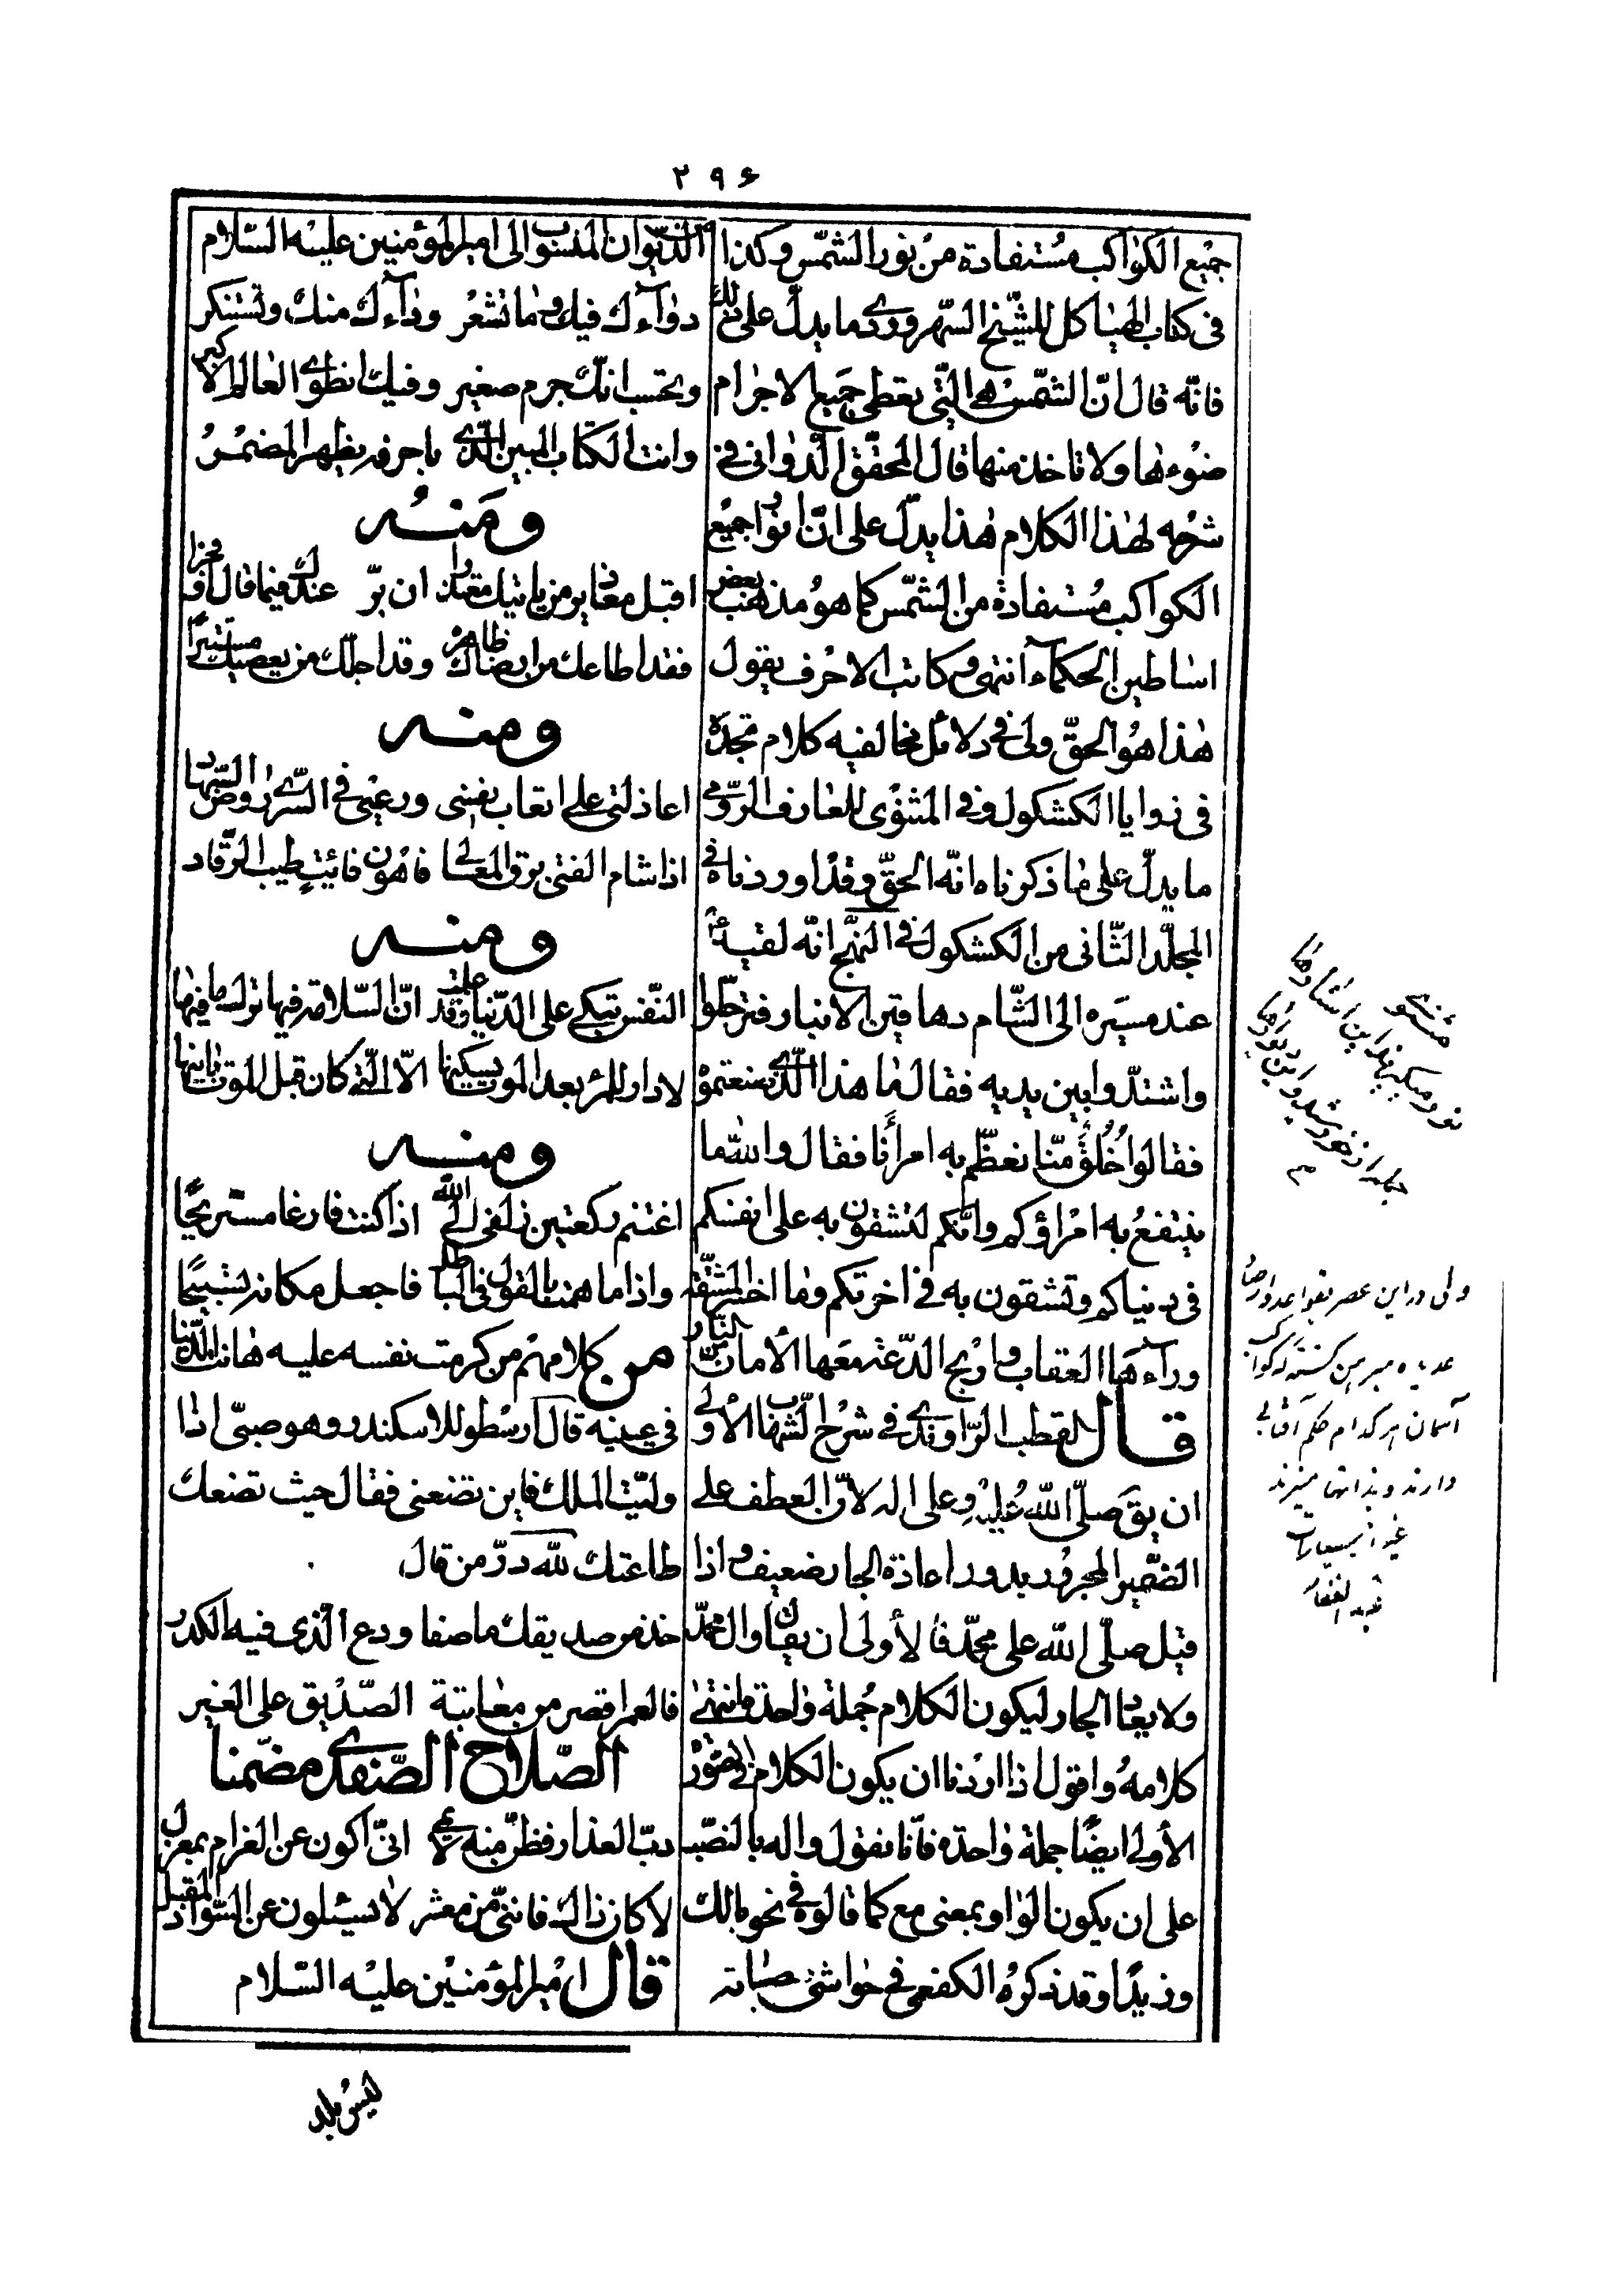 ۲۹۶
جميع الكواكب مستفادة من نور الشمس وكذا
فى كتاب الهياكل للشيخ السهروردى ما يدل على ذلك
فانه قال ان الشمس هى التى يعطى جميع الاجرام
ضوءها ولا تاخذ منها قال المحقق الدوانى فى
شرحه لهذا الكلام هذا يدل على ان انوار جميع
الكواكب مستفادة من الشمس كما هو مذهب بعض
اساطين الحكماء انتهى وكاتب الاحرف يقول
هذا هو الحق ولى فى دلائل مخالفيه كلام تجده
فى زوايا الكشكول وفى المثنوى للعارف الرومى
ما يدل على ما ذكرناه انه الحق وقد اوردناه فى
المجلد الثانى من الكشكول فى النهج انه لقيه
عند مسيره الى الشام دهاقين الانبار فترجلوا
واشتدوا بين يديه فقال ما هذا الذى صنعتموه
فقالوا خلق منا نعظم به امرأنا فقال والله ما
ينتفع به امراؤكم وانكم لتشقون به على انفسكم
فى دنياكم وتشقون به فى اخرتكم وما اخسر المشقة
وراءها العقاب واربح الدعة معها الأمان من النار
قال القطب الراوندى فى شرح الشهاب الأولى
ان يق صلى الله عليه وعلى اله لان العطف على
الضمير المجرور بدون اعادة الجار ضعيف واذا
قيل صلى الله على محمد فالأولى ان يقال وال محمد
ولا يعاد الجار ليكون الكلام جملة واحدة انتهى
كلامه واقول اذا اردنا ان يكون الكلام فى الصورة
الأولى ايضًا جملة واحدة فانا نقول واله بالنصب
على ان يكون الواو بمعنى مع كما قالوه فى نحو مالك
وزيدًا وقد ذكره الكفعمى فى حواشى مصباحه
الديوان المنسوب الى امير المؤمنين عليه السلام
دواءك فيك وما تشعر وداءك منك وتستنكر
وتحسب انك جرم صغير وفيك انطوى العالم الاكبر
وانت الكتاب المبين الذى باحرفه يظهر المضمر
ومنه
اقبل معاذير من ياتيك معتذرا ان بر عندك فيما قال او فجرا
فقد اطاعك من ارضاك ظاهره وقد اجلك من يعصيك مستترا
ومنه
اعاذلتى على اتعاب نفسى ورعيى فى السرى روض السهاد
اذا شام الفتى برق المعالى فاهون فائت طيب الرقاد
ومنه
النفس تبكى على الدنيا وقد علمت ان السلامة فيها ترك ما فيها
لا دار للمرء بعد الموت يسكنها الا التى كان قبل الموت بانيها
ومنه
اغتنم ركعتين زلفى الى الله اذا كنت فارغا مستريحًا
واذا ما هممت بالقول فى الباطل فاجعل مكانه تسبيحًا
من كلامهم من كرمت نفسه عليه هانت الدنيا
فى عينه قال ارسطو للاسكندر وهو صبى اذا
وليت الملك فاين تضعنى فقال حيث تضعك
طاعتك لله در من قال
خذ من صديقك ما صفا ودع الذى فيه الكدر
فالعمر اقصر من معاتبة الصديق على الغير
الصلاح الصفدى مضمنا
دب العذار فظن منه لائمى انى اكون عن الغرام بمعزل
لا كان ذاك فاننى من معشر لا يسئلون عن السواد المقبل
قال امير المؤمنين عليه السلام
ليس بلد
مثنوى
ولى در اين عصر بقواعد وارصاد
جديده مبرهن گشته كه كواكب
آسمان هر كدام حكم آفتابى
دارند و بذاتها منيرند
غير از سيارات
عبد الغفار